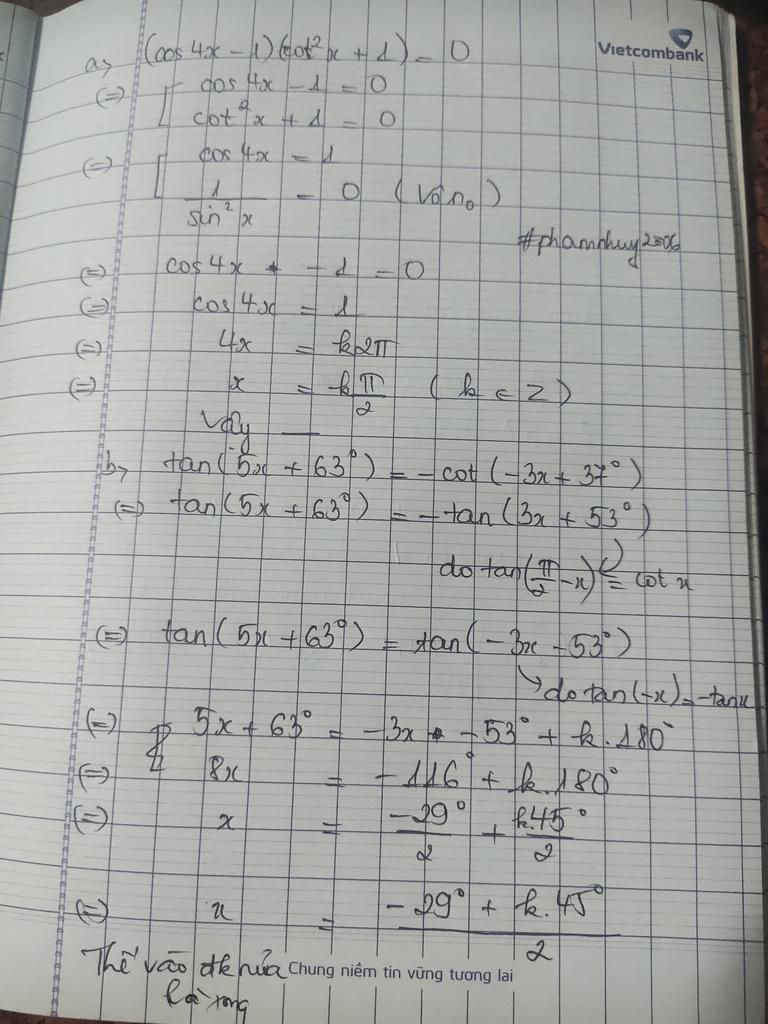 Vietcombank
a, (cos 4x - 1)(cot²x + 1) = 0
(=) [ cos 4x - 1 = 0
cot²x + 1 = 0
(=) [ cos 4x = 1
1/sin²x = 0 (Vô n₀)
#phamhuy2006
(=) cos 4x - 1 = 0
(=) cos 4x = 1
(=) 4x = k2π
(=) x = kπ/2 (k ∈ Z)
Vậy —
b, tan(5x + 63°) = -cot(-3x + 37°)
(=) tan(5x + 63°) = -tan(3x + 53°)
do tan(π/2 - x) = cot x
(=) tan(5x + 63°) = tan(-3x - 53°)
↳ do tan(-x) = -tanx
(=) 5x + 63° = -3x - 53° + k.180°
(=) 8x = -116° + k.180°
(=) x = -29°/2 + k.45°/2
(=) x = (-29° + k.45°)/2
Thế vào đk nữa
là xong
Chung niềm tin vững tương lai